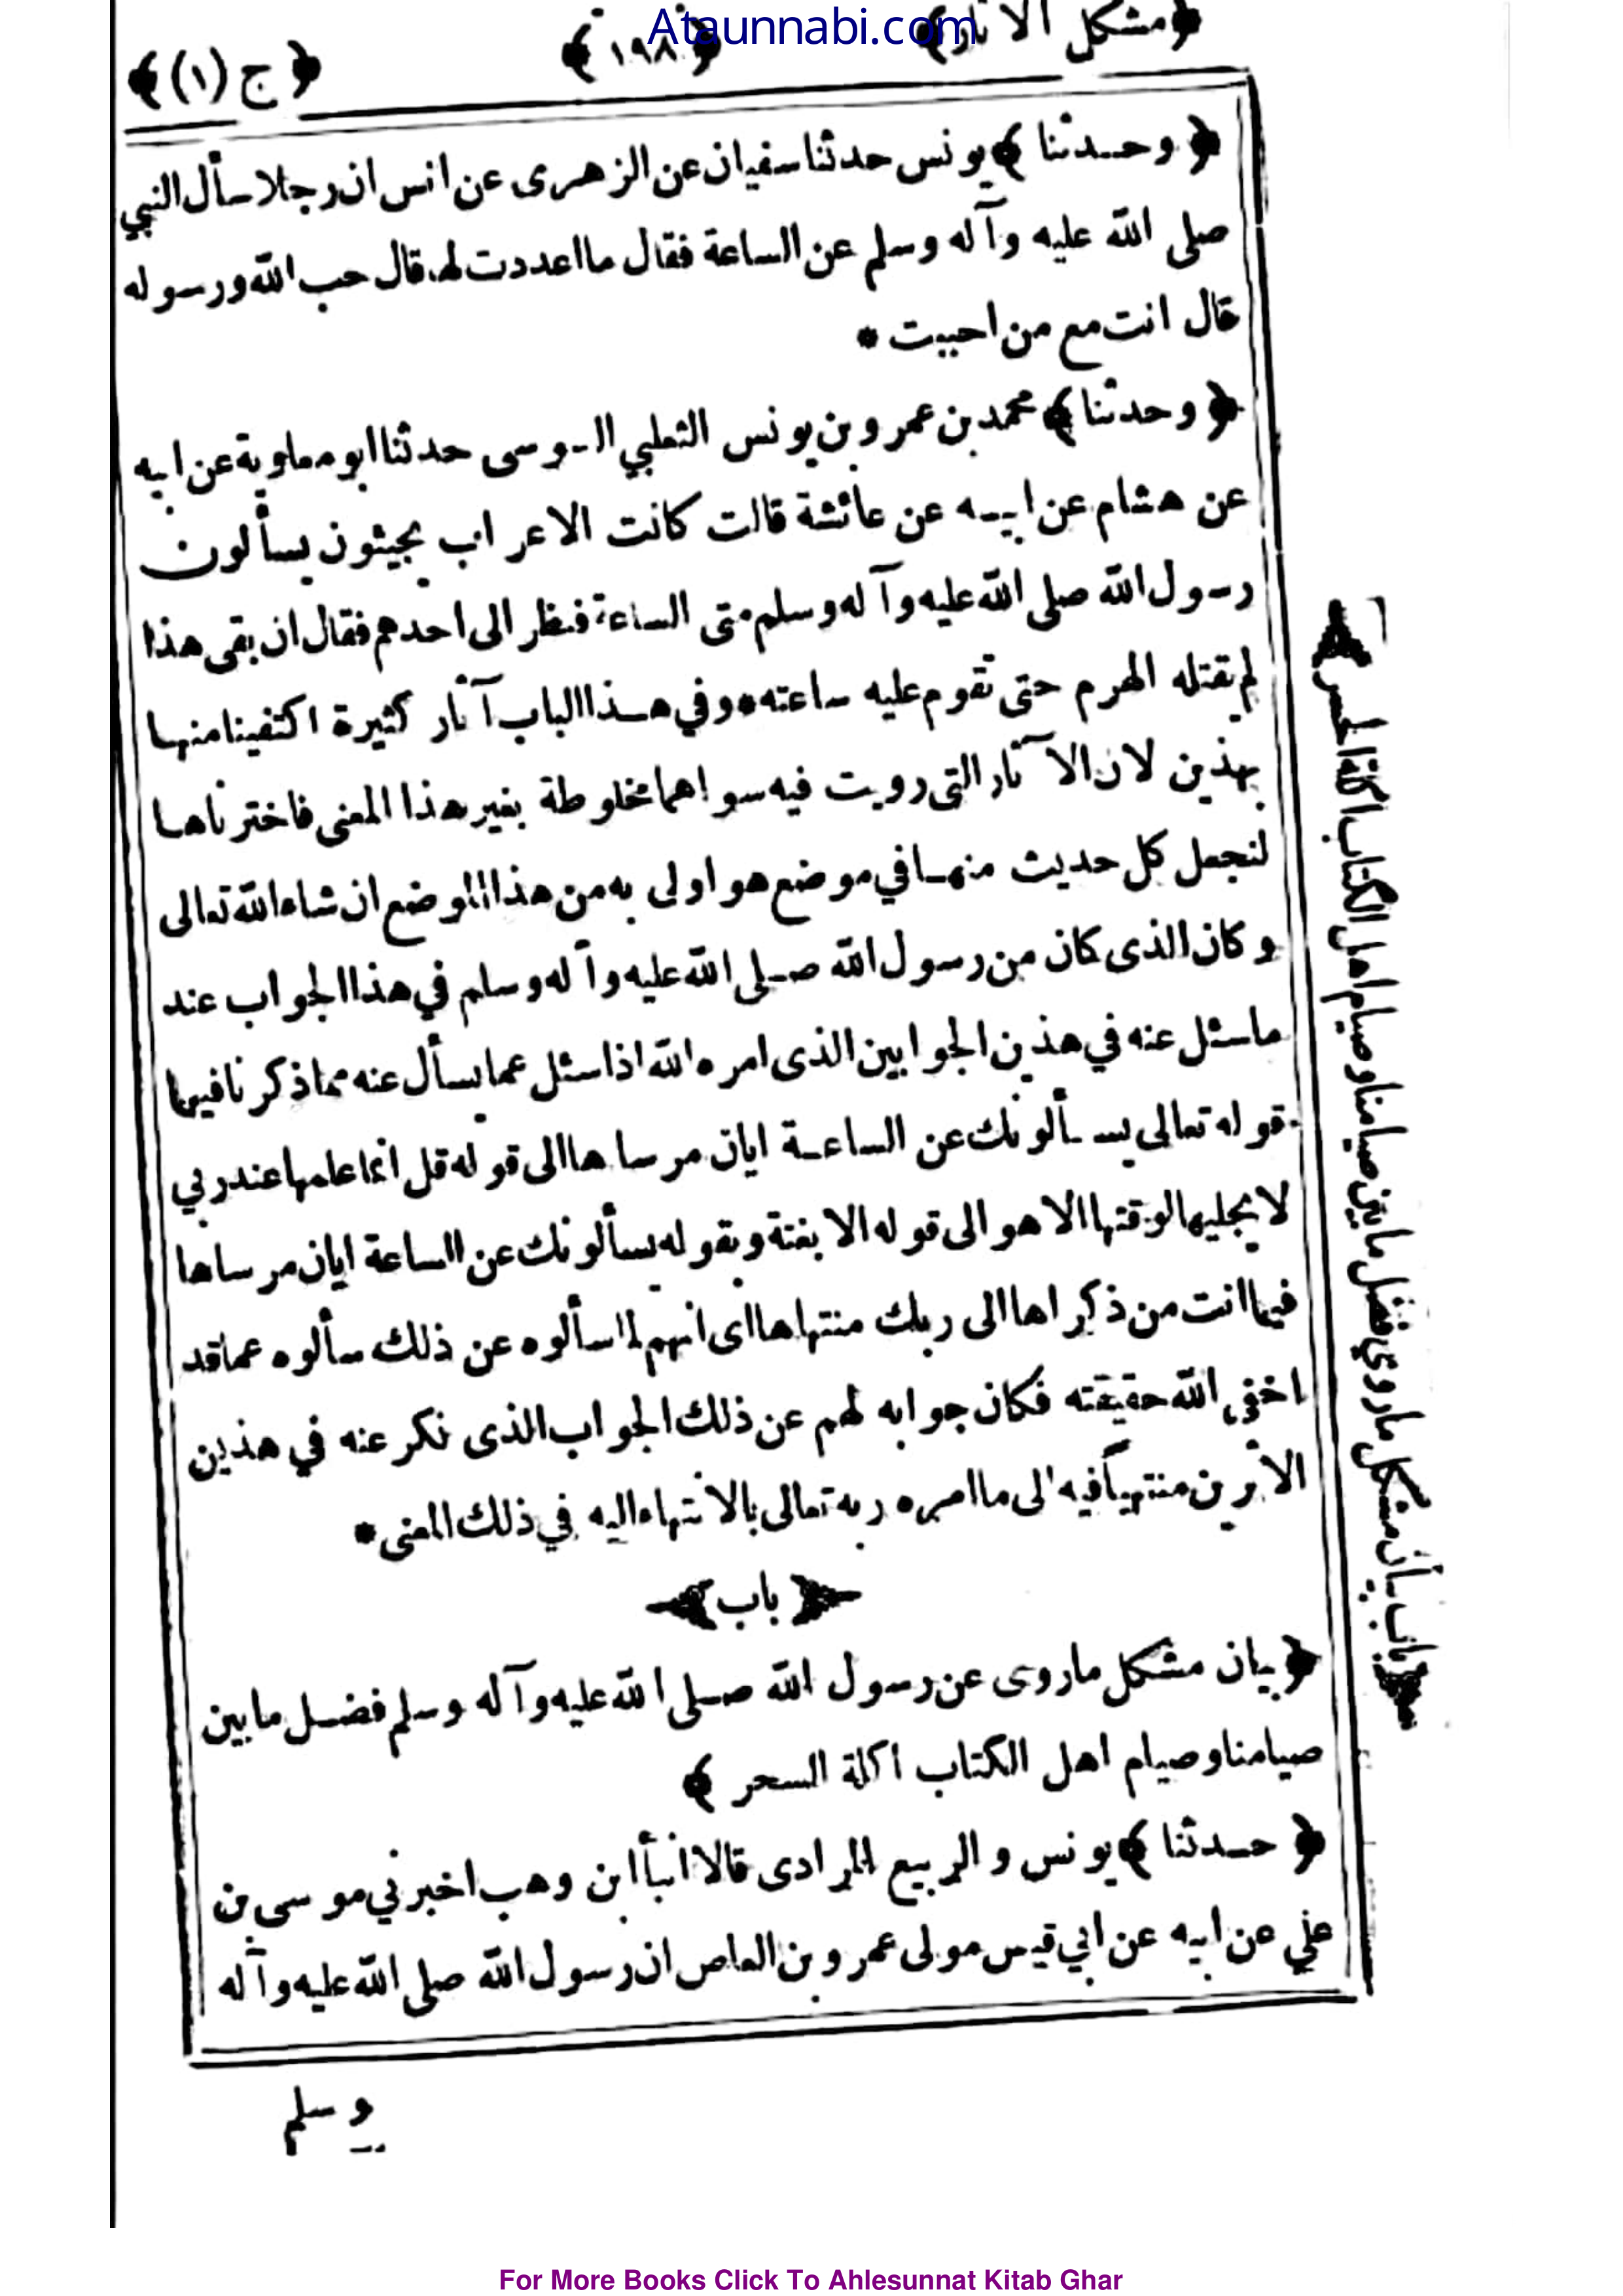 Ataunnabi.com
﴿مشكل الآثار﴾ ﴿١٩٨﴾ ﴿ج (١)﴾
﴿وحدثنا﴾ يونس حدثنا سفيان عن الزهرى عن انس ان رجلا سأل النبي
صلى الله عليه وآله وسلم عن الساعة فقال ما اعددت لها قال حب الله ورسوله
قال انت مع من احببت *
﴿وحدثنا﴾ محمد بن عمرو بن يونس الثعلبي السوسى حدثنا ابو معاوية عن ابيه
عن هشام عن ابيه عن عائشة قالت كانت الاعراب يجيئون يسألون
رسول الله صلى الله عليه وآله وسلم متى الساعة فنظر الى احدهم فقال ان بقى هذا
لم يقتله الهرم حتى تقوم عليه ساعته * وفي هذا الباب آثار كثيرة اكتفينا منها
بهذين لان الآثار التى رويت فيه سواهما مخلوطة بغير هذا المعنى فاخترناها
لنجعل كل حديث منها في موضع هو اولى به من هذا الموضع ان شاء الله تعالى
وكان الذى كان من رسول الله صلى الله عليه وآله وسلم في هذا الجواب عند
ما سئل عنه في هذين الجوابين الذى امره الله اذا سئل عما يسأل عنه مما ذكرنا فيهما
قوله تعالى يسألونك عن الساعة ايان مرساها الى قوله قل انما علمها عند ربي
لا يجليها لوقتها الا هو الى قوله الا بغتة وبقوله يسألونك عن الساعة ايان مرساها
فيما انت من ذكراها الى ربك منتهاها اى انهم لما سألوه عن ذلك سألوه عما قد
اخفى الله حقيقته فكان جوابه لهم عن ذلك الجواب الذى نكر عنه في هذين
الاثرين منتهيا فيه الى ما امره ربه تعالى بالانتهاء اليه في ذلك المعنى *
﴿باب﴾
﴿بيان مشكل ما روى عن رسول الله صلى الله عليه وآله وسلم فضل ما بين
صيامنا وصيام اهل الكتاب اكلة السحر﴾
﴿حدثنا﴾ يونس والربيع المرادى قالا انبأ ابن وهب اخبرني موسى بن
علي عن ابيه عن ابي قيس مولى عمرو بن العاص ان رسول الله صلى الله عليه وآله
وسلم
﴿باب بيان مشكل ما روي فضل ما بين صيامنا وصيام اهل الكتاب اكلة السحر﴾
For More Books Click To Ahlesunnat Kitab Ghar